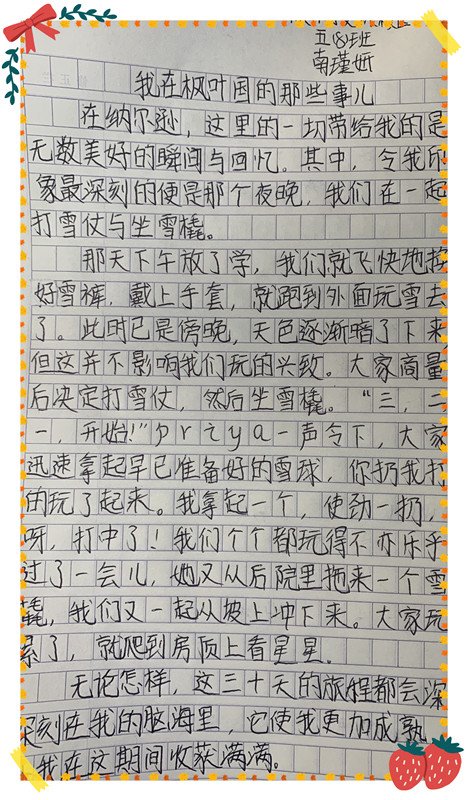 五(8)班
南瑾妍
我在枫叶国的那些事儿
在纳尔逊，这里的一切带给我的是
无数美好的瞬间与回忆。其中，令我印
象最深刻的便是那个夜晚，我们在一起
打雪仗与坐雪橇。
那天下午放了学，我们就飞快地换
好雪裤，戴上手套，就跑到外面玩雪去
了。此时已是傍晚，天色逐渐暗了下来
但这并不影响我们玩的兴致。大家商量
后决定打雪仗，然后坐雪橇。“三，二
一，开始！”priya一声令下，大家
迅速拿起早已准备好的雪球，你扔我打
的玩了起来。我拿起一个，使劲一扔，
呀，打中了！我们个个都玩得不亦乐乎
过了一会儿，她又从后院里拖来一个雪
橇，我们又一起从坡上冲下来。大家玩
累了，就爬到房顶上看星星。
无论怎样，这三十天的旅程都会深
深刻在我的脑海里，它使我更加成熟
我在这期间收获满满。